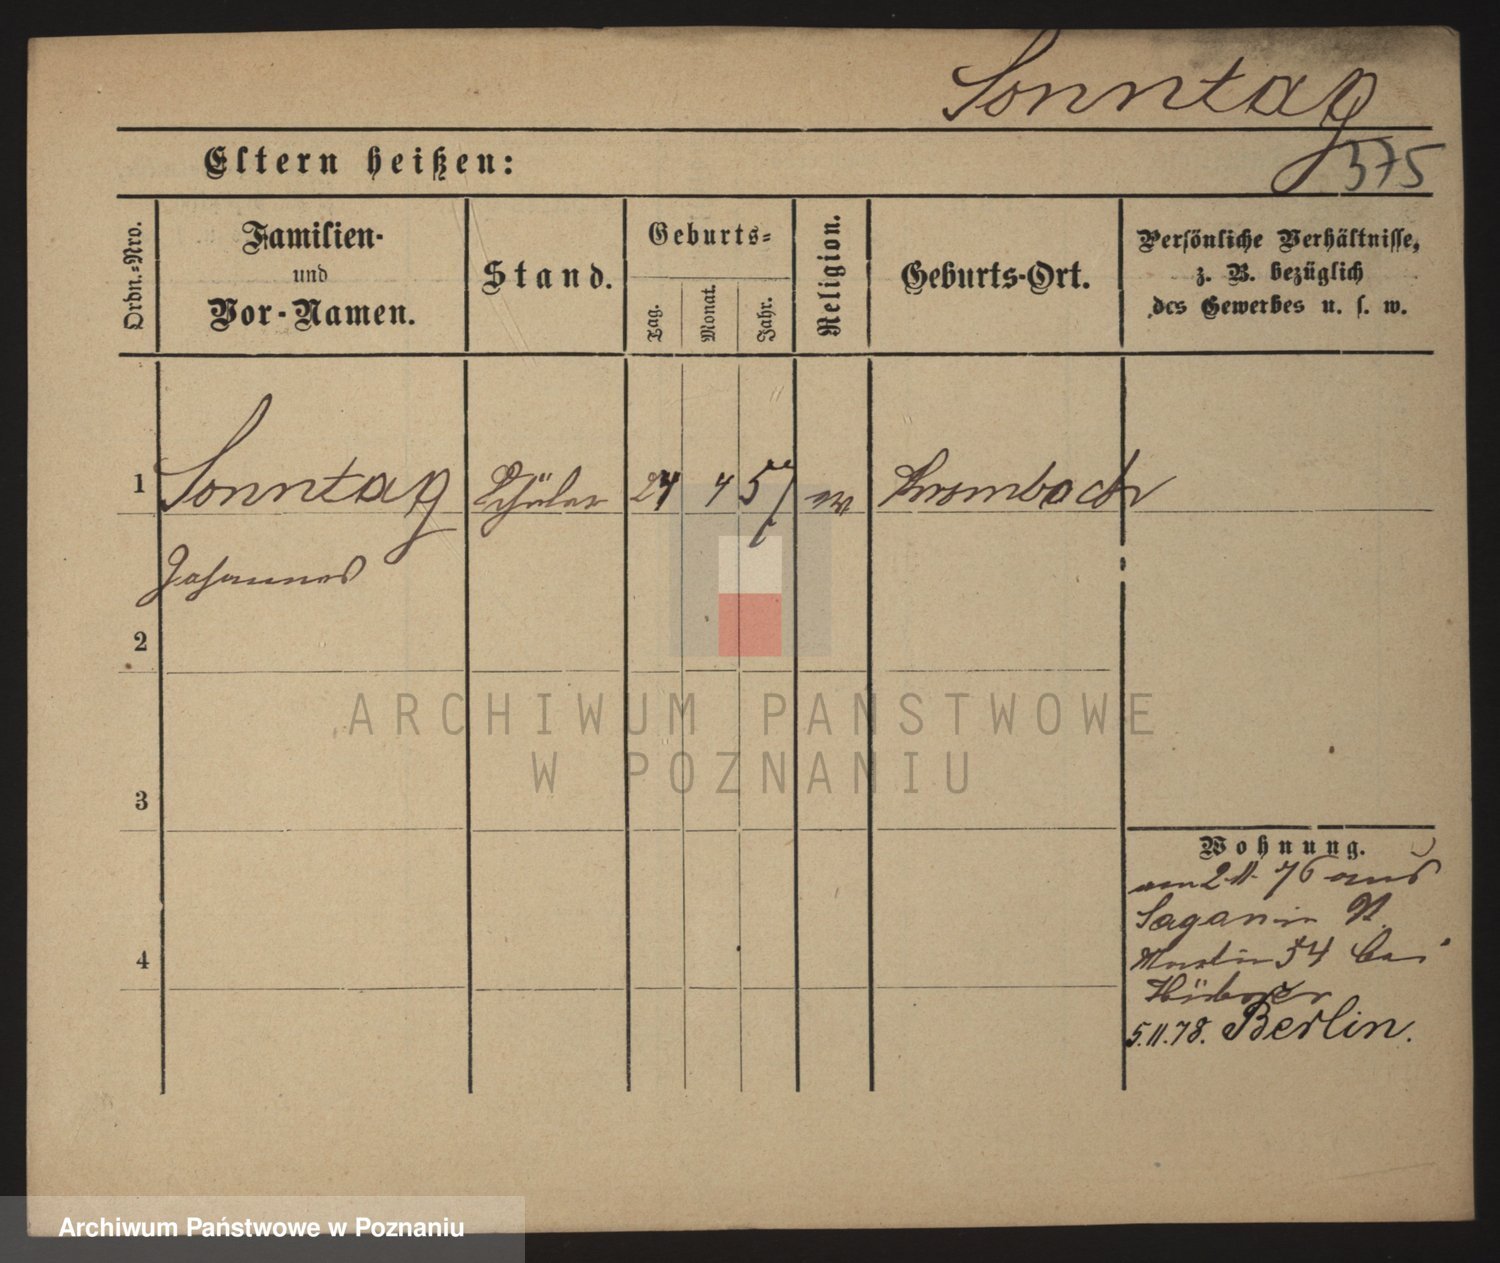 Sonntag
375
Eltern heißen:
Ordn.-Nro.
Familien-
und
Vor-Namen.
Stand.
Geburts-
Tag.
Monat.
Jahr.
Religion.
Geburts-Ort.
Persönliche Verhältnisse,
z. B. bezüglich
des Gewerbes u. s. w.
1
Sonntag Schüler 24 4 57 ev Krombach
Johannes
2
ARCHIWUM PAŃSTWOWE
W POZNANIU
3
Wohnung.
am 2.11.76 aus
Sagan in St.
Martin 54 bei
5.11.78. Berlin.
4
Archiwum Państwowe w Poznaniu